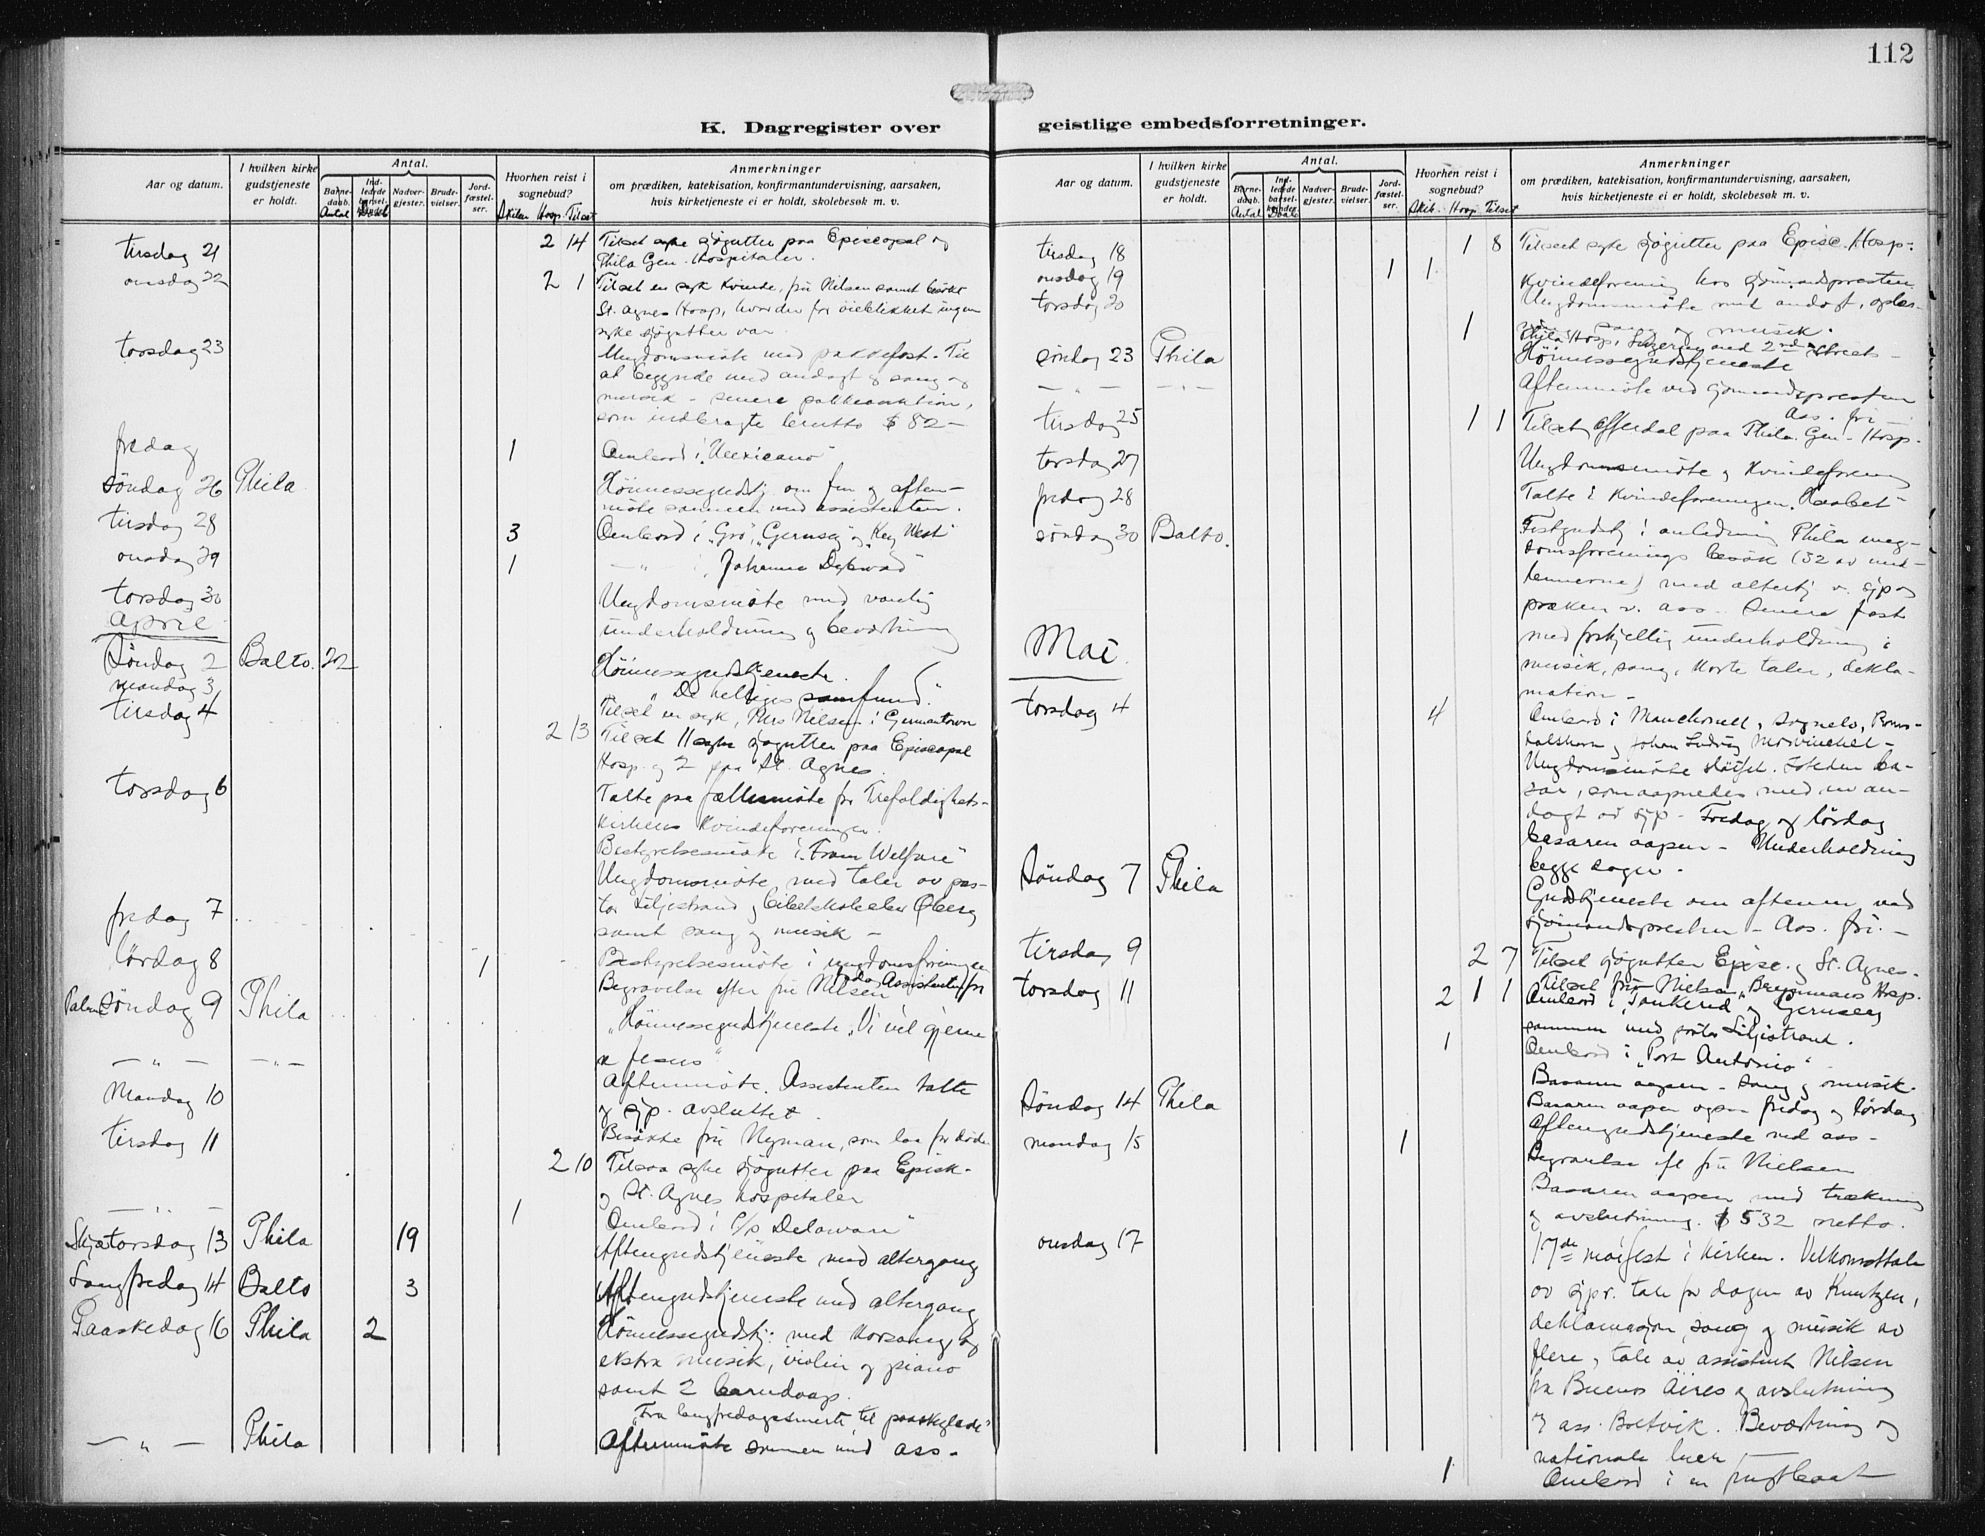 112
K. Dagregister over geistlige embedsforretninger.
Aar og datum.
I hvilken kirke gudstjeneste er holdt.
Antal.
Barne-daab. Ind-ledede barsel-kvinder. Nadver-gjester. Brude-vielser. Jord-fæstel-ser.
Antal Daab
Hvorhen reist i sognebud?
Skiben Hosp. Tilset
Anmerkninger
om prædiken, katekisation, konfirmantundervisning, aarsaken,
hvis kirketjeneste ei er holdt, skolebesøk m. v.
tirsdag 21 2 14 Tilset syke sjøgutter paa Episcopal og
Phila Gen. Hospitaler.
onsdag 22 2 1 Tilset en syk kvinde, fru Nilsen samt besøkt
St. Agnes Hosp, hvor der for øieblikket ingen
syke sjøgutter var.
torsdag 23 Ungdomsmøte med pakkefest. Til
at begynde med andagt og sang og
musik - senere pakkeauktion,
som indbragte brutto $ 82-
fredag 1 Ombord i "Mexicano"
Søndag 26 Phila Høimessegudstj. om fm og aften-
møte sammen med assistenten.
tirsdag 28 3 Ombord i "Gro", "Gernsey og Key West"
onsdag 29 1 - " - Johanne Dybwad
torsdag 30 Ungdomsmøte med vanlig
underholdning og bevertning
April
Søndag 2 Balto. 22 Høimessegudstjeneste.
"De helliges samfund."
mandag 3 Tilset en syk, Mrs Nilsen i Germantown
tirsdag 4 2 13 Tilset 11 syke sjøgutter paa Episcopal
Hosp. og 2 paa St. Agnes.
torsdag 6 Talte paa fællesmøte for Trefoldigheds-
kirkens Kvindeforeninger.
Bestyrelsesmøte i "Fram Welfare"
Ungdomsmøte med taler av pas-
tor Liljestrand og bibelskoleelev Øberg
samt sang og musik -
fredag 7
lørdag 8 1 Bestyrelsesmøte i ungdomsforeningen
Begravelse efter fru Nilsen
Palmesøndag 9 Phila "Høimessegudstjeneste. "Vi vil gjerne
se Jesus"
- " - - " - Aftenmøte. Assistenten talte
og sjp. avsluttet.
Mandag 10 Besøkte fru Nyman, som laa for døden
tirsdag 11 2 10 Tilsaa syke sjøgutter paa Episk.
og St. Agnes hospitaler
- " - 1 Ombord i S/S Delaware"
Skjærtorsdag 13 Phila 19 Aftengudstjeneste med altergang
Langfredag 14 Balto 3 Aftengudstjeneste med altergang
Paaskedag 16 Phila 2 Høimessegudstj: med korsang og
ekstra musik, violin og piano
samt 2 barnedaap.
"Fra langfredagssmerte til paaskeglæde"
- " - Phila Aftenmøte sammen med ass.
Aar og datum.
I hvilken kirke gudstjeneste er holdt.
Antal.
Barne-daab. Ind-ledede barsel-kvinder. Nadver-gjester. Brude-vielser. Jord-fæstel-ser.
Antal Daab
Hvorhen reist i sognebud?
Skib. Hosp. Tilset
Anmerkninger
om prædiken, katekisation, konfirmantundervisning, aarsaken,
hvis kirketjeneste ei er holdt, skolebesøk m. v.
tirsdag 18 1 8 Tilset syke sjøgutter paa Episc. Hosp.
onsdag 19 1 1 Kvindeforening hos sjømandspresten
torsdag 20 Ungdomsmøte med andagt, oplæs-
ning, sang og musik.
1 Phila Hosp, 2nd Streets
søndag 23 Phila Høimessegudstjeneste
- " - - " - Aftenmøte ved sjømandspresten
Ass. fri
tirsdag 25 1 1 Tilset Offerdal paa Phila. Gen. Hosp.
torsdag 27 Ungdomsmøte og Kvindeforening
fredag 28 Talte i Kvindeforeningen "Haabet"
søndag 30 Balto. Festgudstj i anledning Phila ung-
domsforenings besøk (52 av med-
lemmerne) med altertj. v. sjp og
præken v. ass. Senere fest
med forskjellig underholdning i
musik, sang, korte taler, dekla-
mation -
Mai.
torsdag 4 4 Ombord i Manchonell, Sognelv, Roms-
dalshorn og Johan Ludvig Mowinckel -
Ungdomsmøte sløifet. Isteden ba-
sar, som aapnedes med en an-
dagt av sjp - Fredag og lørdag
basaren aapen - Underholdning
begge dager.
Søndag 7 Phila Gudstjeneste om aftenen ved
sjømandspresten - Ass. fri. -
tirsdag 9 2 7 Tilset sjøgutter Episc. og St. Agnes.
torsdag 11 1 1 Tilset fru Nielsen, Hosp.
2 Ombord i "Tankerud" og Gernsey
sammen med pastor Liljestrand.
1 Ombord i "Port Antonio"
Basaren aapen - sang og musik.
Basaren aapen ogsaa fredag og lørdag
Søndag 14 Phila Aftengudstjeneste ved ass -
mandag 15 1 Begravelse ef. fru Nielsen
Basaren aapen med trækning
og avslutning. $ 532 netto.
onsdag 17 17de maifest i Kirken. Velkomsttale
av sjpr. tale for dagen av Kuntzen,
deklamasjon, sang og musik av
flere, tale av assistent Nilsen
fra Buenos Aires og avslutning
v. ass. Boltvik. Bevertning og
nationale
1 Ombord i en fruktbaat